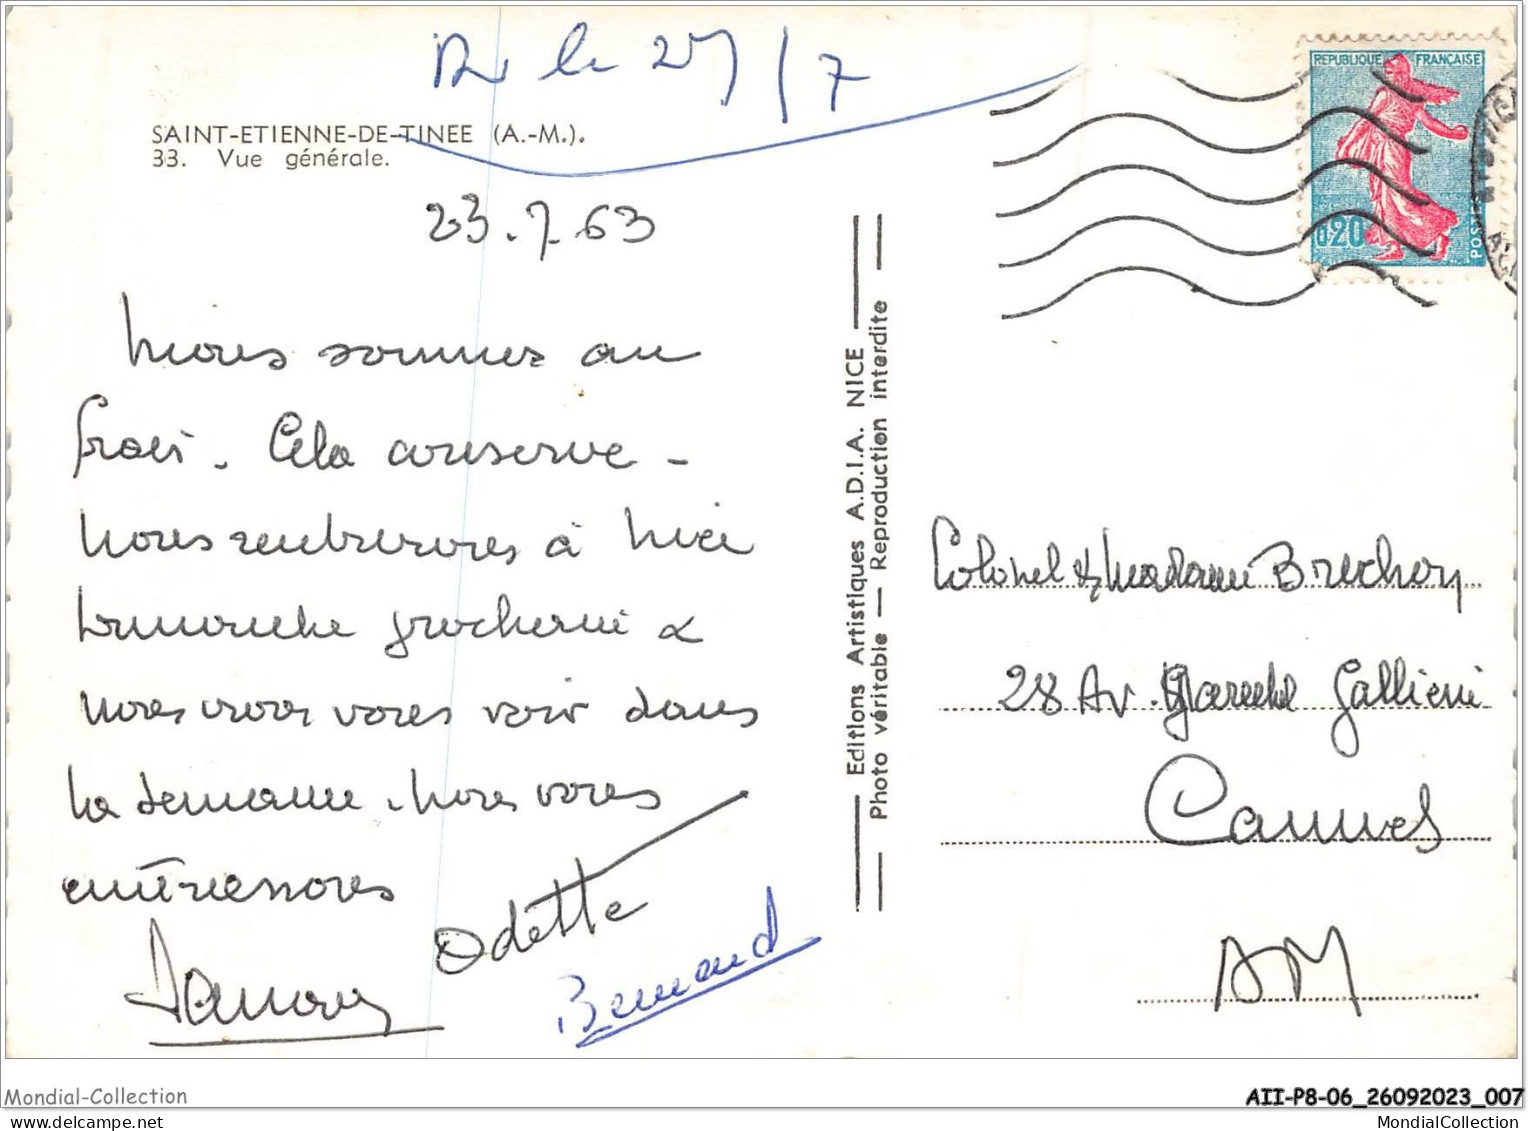 Re le 25/7
SAINT-ETIENNE-DE-TINEE (A.-M.).
33. Vue générale.
23.7.63
Nous sommes au
frais. Cela conserve -
Nous rentrerons à Nice
dimanche prochain &
nous irons vous voir dans
la semaine. Nous vous
embrassons
Odette
Bernard
Editions Artistiques A.D.I.A. NICE
Photo véritable — Reproduction interdite
REPUBLIQUE FRANÇAISE
0,20
POSTES
Colonel & Madame Brechon
28 Av. Marechal Gallieni
Cannes
AM
Mondial-Collection
AII-P8-06_26092023_007
mondialcollection
MondialCollection